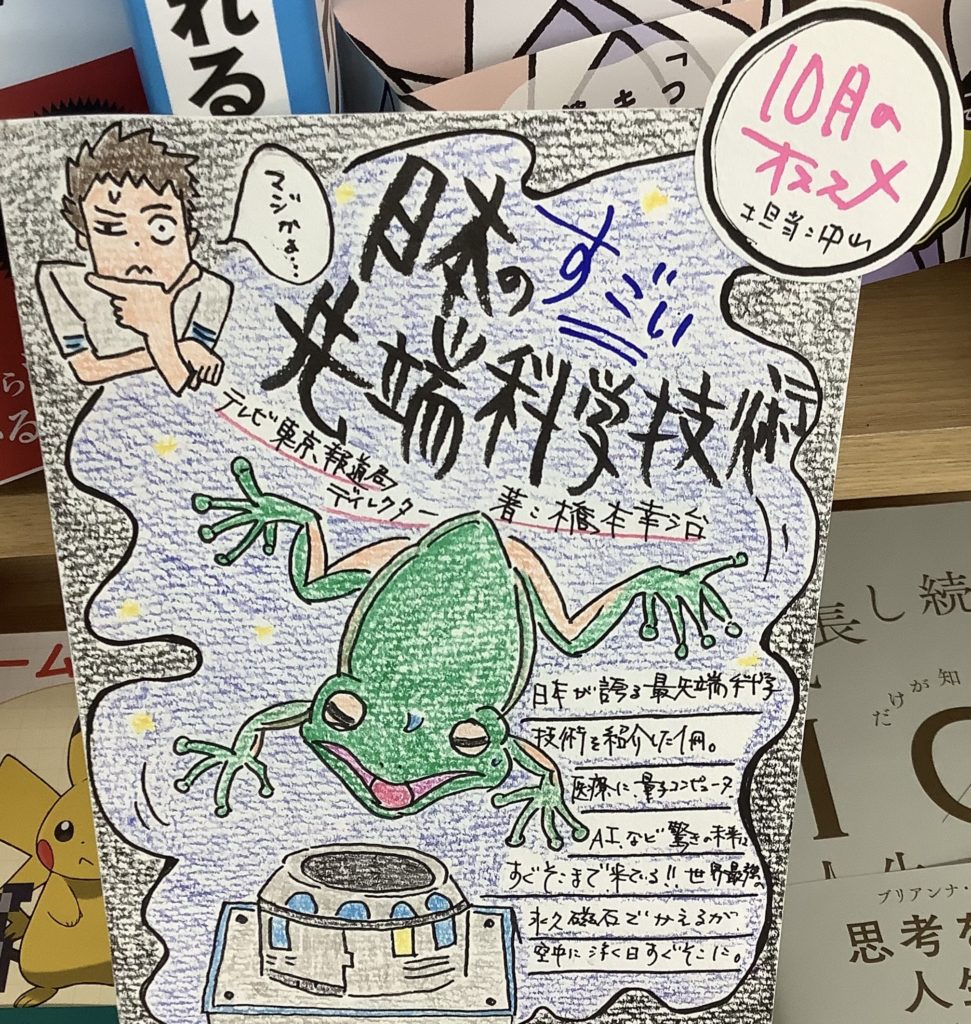 れる
「つ
10月の
オススメ
担当:中山
マジかぁ…
日本の
すごい
先端科学技術
テレビ東京報道局
ディレクター
著:橋本幸治
日本が誇る最先端の科学
技術を紹介した1冊。
医療に量子コンピュータ
AI、など驚きの未来は
すぐそこまで来ている!!世界最強の
永久磁石でかえるが
空中に浮く日すぐそこに。
長し続
だけが知
ブリアンナ・
思考を
人生